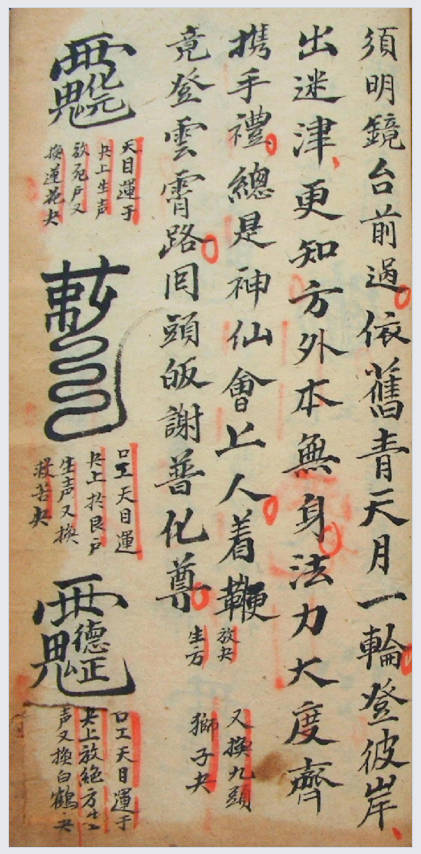 須明鏡台前過依舊青天月一輪登彼岸
出迷津更知方外本無身法力大度齊
携手禮總是神仙會上人着鞭
放夬
生方
又換九頭
獅子夬
竟登雲霄路囘頭皈謝普化尊
天目運于
夬上生声
放死戶又
換蓮花夬
口工天目運
夬上於艮戶
生声又換
救苦夬
口工天目運于
夬上放絕方生
声又換白鶴夬